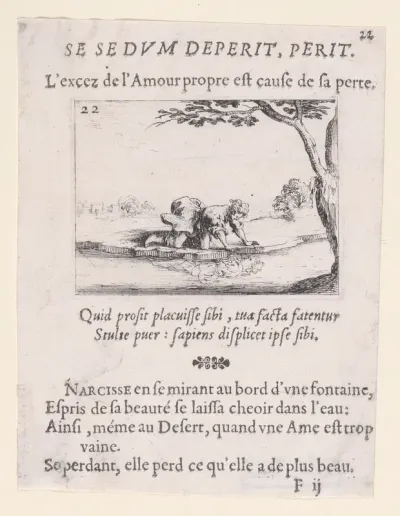 22
SE SE DVM DEPERIT, PERIT.
L'excez de l'Amour propre est cause de sa perte.
22
Quid prosit placuisse sibi, tua facta fatentur
Stulte puer: sapiens displicet ipse sibi.
NARCISSE en se mirant au bord d'vne fontaine,
Espris de sa beauté se laissa cheoir dans l'eau:
Ainsi, méme au Desert, quand vne Ame est trop
vaine.
Se perdant, elle perd ce qu'elle a de plus beau.
F ij